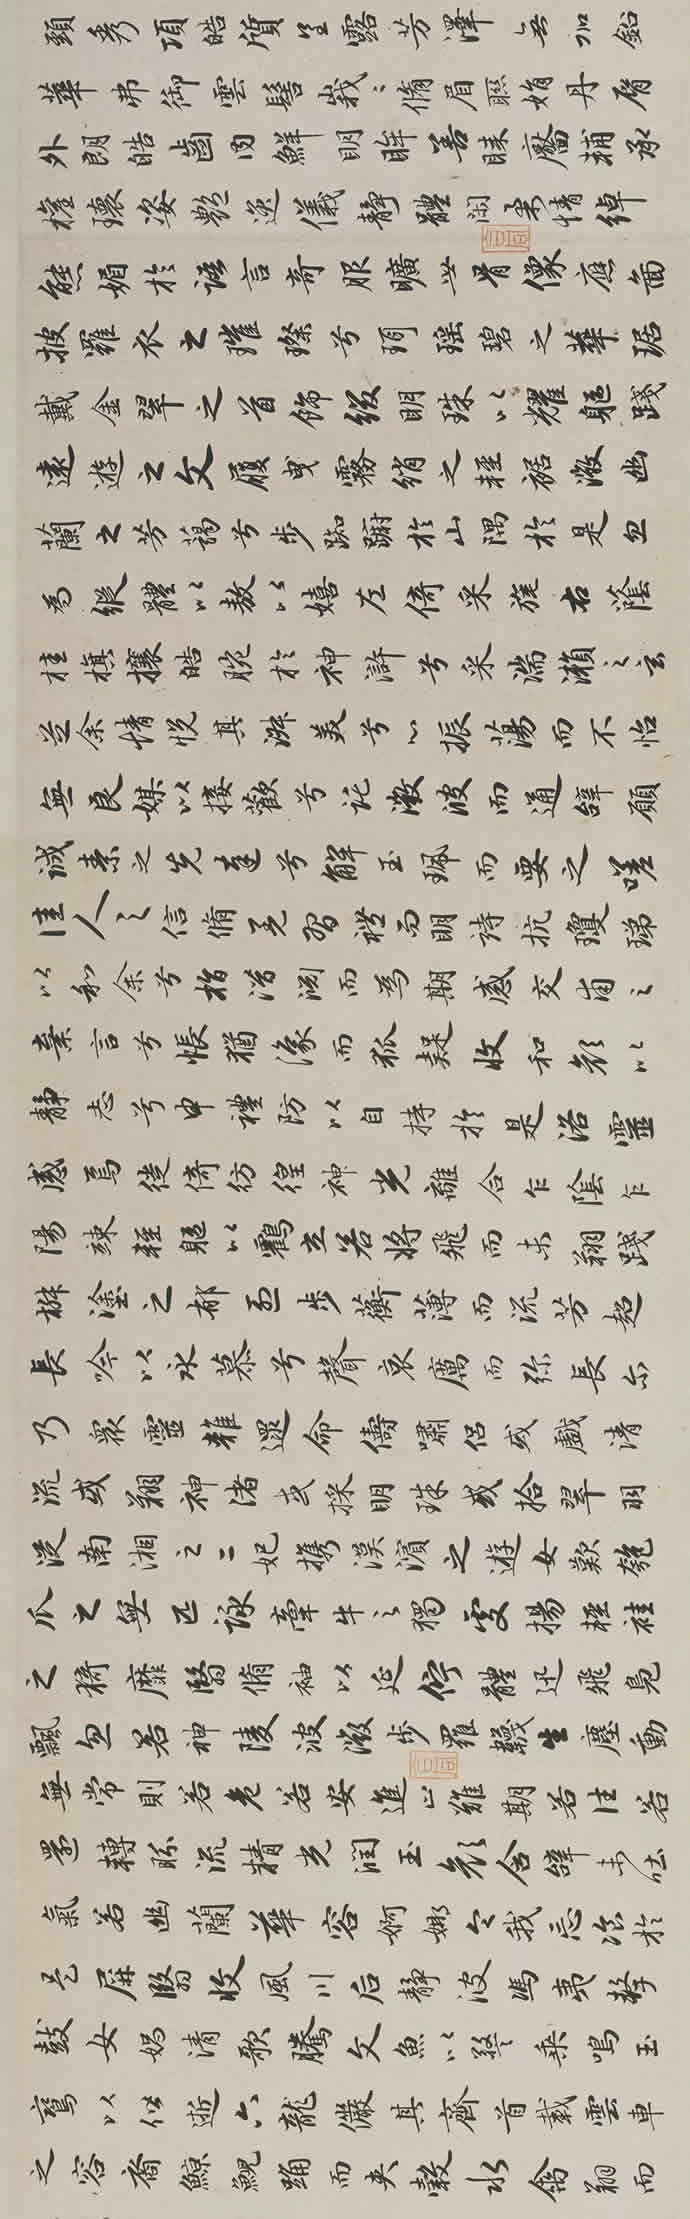 頸秀項皓質呈露芳澤無加鉛
華弗御雲髻峩〻脩眉聯娟丹脣
外朗皓齒內鮮明眸善睞靨輔承
權瓌姿艷逸儀靜體閑柔情綽
態媚於語言奇服曠世骨像應圖
披羅衣之璀璨兮珥瑤碧之華琚
戴金翠之首飾綴明珠以耀軀踐
遠遊之文履曳霧綃之輕裾微幽
蘭之芳藹兮步踟躕於山隅於是忽
焉縱體以敖以嬉左倚采旄右蔭
桂旗攘皓腕於神滸兮采湍瀨之玄
芝余情悅其淑美兮心振蕩而不怡
無良媒以接歡兮託微波而通辭願
誠素之先達兮解玉珮而要之嗟
佳人之信脩羌習禮而明詩抗瓊珶
以和余兮指潛淵而為期感交甫之
棄言兮悵猶豫而狐疑收和顏以
靜志兮申禮防以自持於是洛靈
感焉徙倚彷徨神光離合乍陰乍
陽竦輕軀以鶴立若將飛而未翔踐
椒塗之郁烈步蘅薄而流芳超
長吟以永慕兮聲哀厲而彌長尔
乃衆靈雜遝命儔嘯侶或戲清
流或翔神渚或採明珠或拾翠羽
從南湘之二妃攜漢濱之遊女歎匏
瓜之無匹詠牽牛之獨處揚輕袿
之猗靡翳脩袖以延佇體迅飛鳧
飄忽若神陵波微步羅韈生塵動
無常則若危若安進止難期若往若
還轉眄流精光潤玉顏含辭未吐
氣若幽蘭華容婀娜令我忘飡於
是屏翳收風川后靜波馮夷擊
鼓女媧清歌騰文魚以警乘鳴玉
鸞以偕逝六龍儼其齊首載雲車
之容裔鯨鯢踊而夾轂水禽翔而